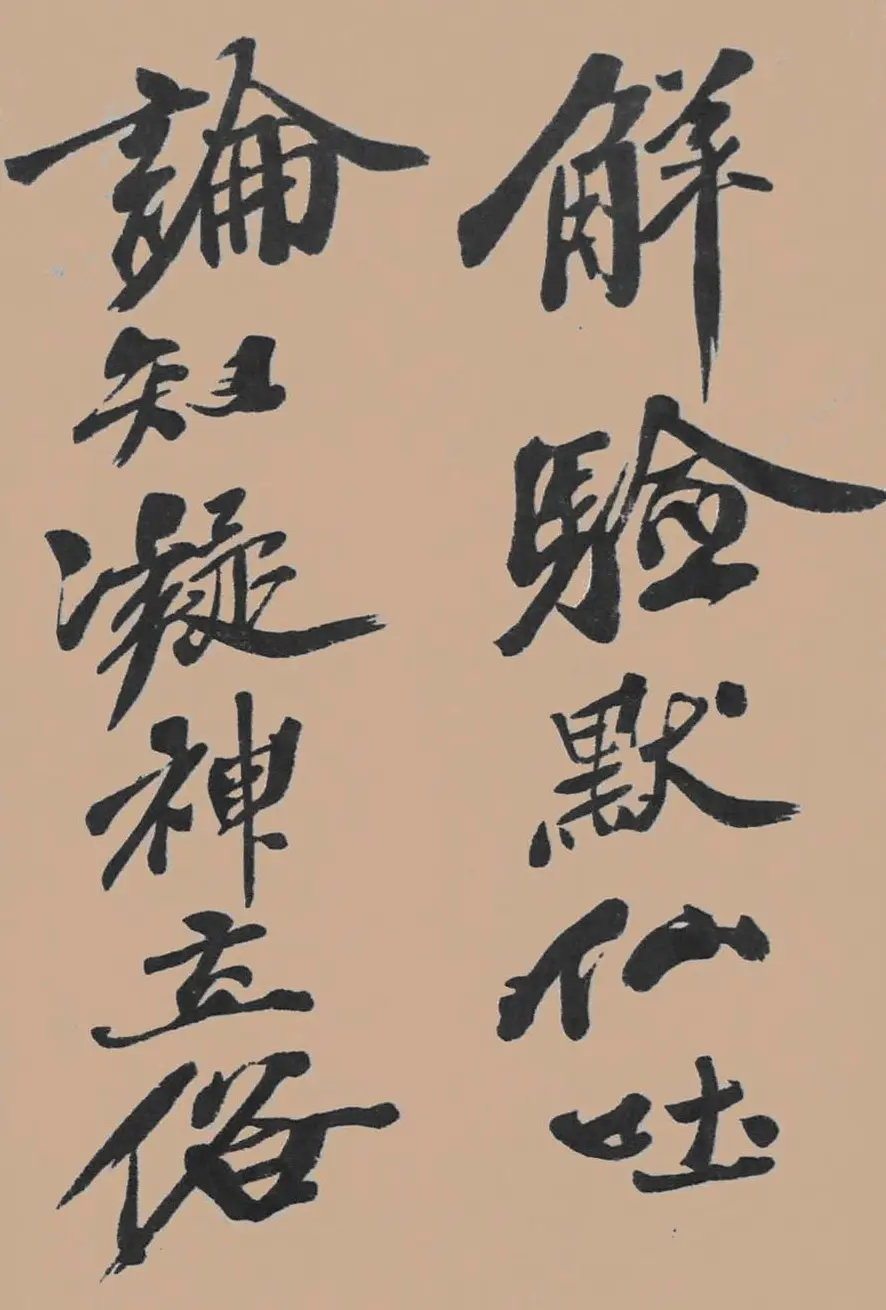 解驗默仙吐
論知凝神立俗